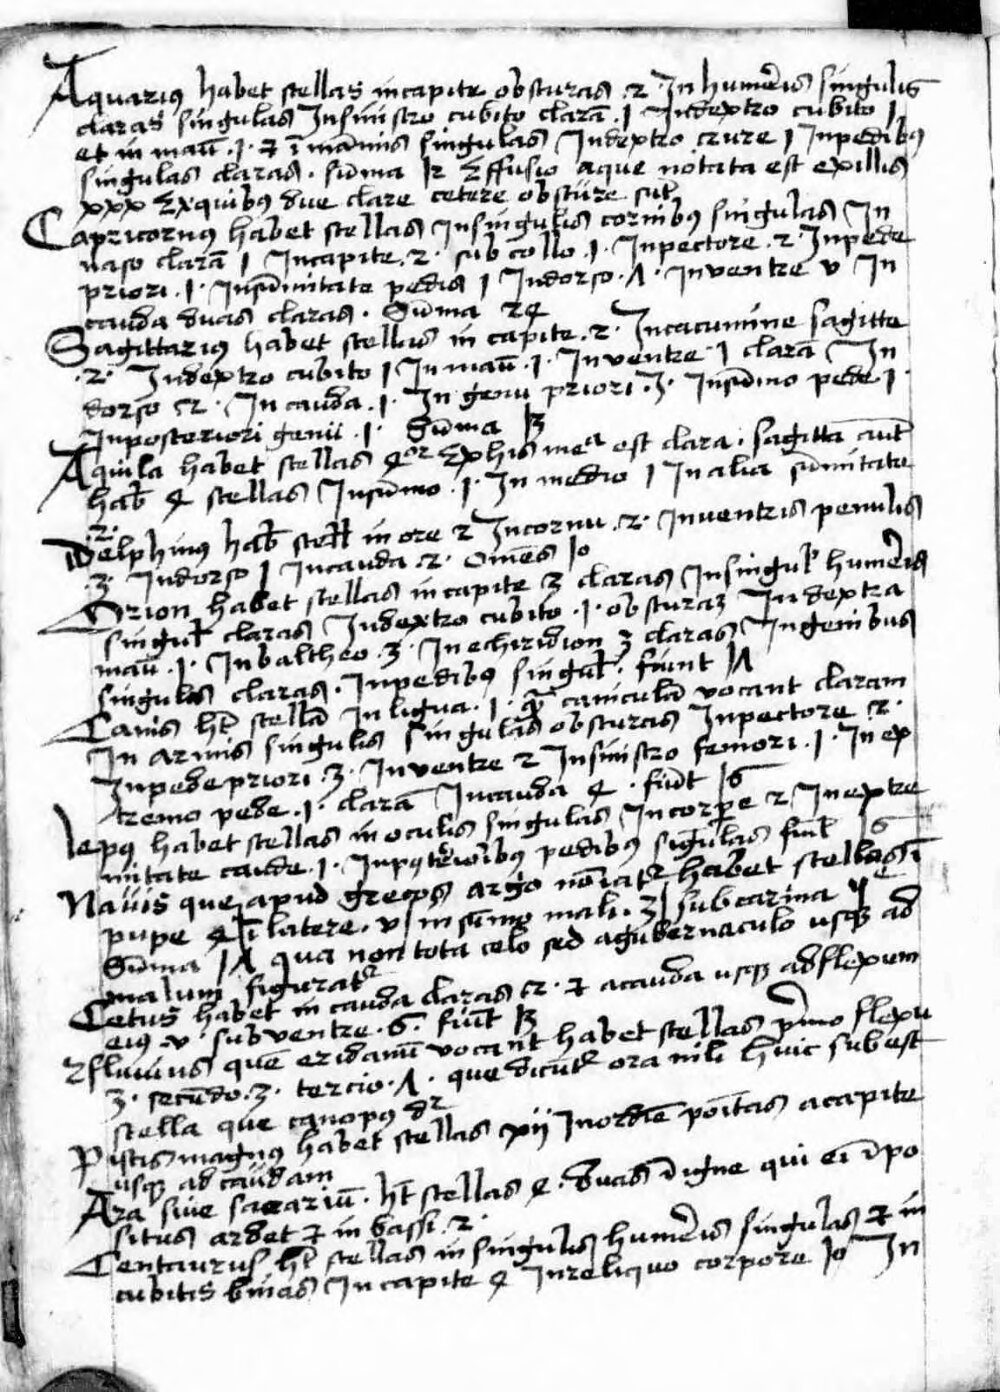 Aquariꝰ habet stellas in capite obscuras .2. In humeris singulis
claras singulas In sinistro cubito clarā .1 In dextro cubito 1
et in manū .1. ⁊ ī māmis singulas In dextro crure 1 In pedibꝰ
singulas claras . sūma 12 Effusio aque notata est ex illis
xxx Ex quibꝰ due clare cetere obscure sūt
Capricornꝰ habet stellas In singulis cornibꝰ singulas In
naso clarā 1 In capite .2. sub collo .1. In pectore .2. In pede
priori .1. In sūmitate pedis 1 In dorso .Λ. in ventre v In
cauda duas claras . Sūma 24
Sagittariꝰ habet stellas in capite .2. In cacumine sagitte
.2. In dextro cubito 1 In manū .1. In ventre 1 clarā In
dorso 2. In cauda .1. In genu priori .3. In sūmo pede .1.
In posteriori genu .1. Sūma 13
Aquila habet stellas 4or Ex his mea est clara . sagittā aut
hab 4 stellas In sūmo .1. In medio 1 In alia sūmitate
.2.
Delphinꝰ hab stell in ore 2 In cornu .2. In ventris penulis
.3. In dorso 1 In cauda 2. Omēs 10
Orion habet stellas in capite 3 claras In singul humeris
singul claras In dextro cubito .1. obscuraꝫ In dextra
manū .1. In baltheo .3. In echiridion 3 claras In genibus
singulas claras . In pedibꝰ singul . fiunt 1Λ
Canis ht stellā In ligua .1. quā caniculā vocant claram
In armis singulis singulas obscuras In pectore 2.
In pede priori .3. In ventre 2 In sinistro femori .1. In ex
tremo pede .1. clarā In cauda 4 . fiūt 16
lepꝰ habet stellas in oculis singulas In corpe 2 In extre
mitate caude .1. In pꝰterioribꝰ pedibꝰ sigulas fiūt 16
Navis que apud grecos argo noīatr habet stellas ī
pupe 4 ī latere . v in sūmo mali .3 sub carina 4
Sūma 1Λ qua non tota celo sed a gubernaculo usqꝫ ad
malum figuratr
Cetus habet in cauda claras 2. ⁊ a cauda usqꝫ ad flexum
eiꝰ .v. sub ventre .6. fiūt 13
Fluvius quē eridanū vocant habet stellas pmo flexu
3. secūdo .3. tercio .Λ. que dicūtr ora nili huic sub est
stella que canopꝰ dr
Piscis magnꝰ habet stellas xij In ordīe poītas a capite
usqꝫ ad caudam
Ara sive sacrariū . ht stellas 4 . duas ī igne qui eī īpo
situs ardet ⁊ in bassi .2.
Centaurus ht stellas in singulis humeris singulas ⁊ in
cubitis binas In capite 4 In reliquo corpore 10 In